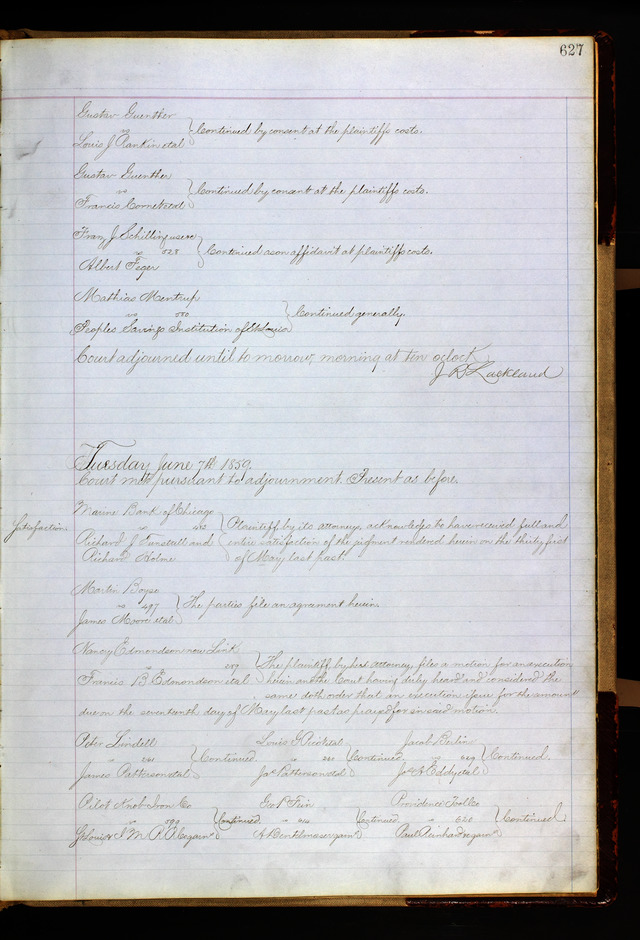 627
Gustav Guenther
vs } Continued by consent at the plaintiffs costs.
Louis J Rankin etal
Gustav Guenther
vs } Continued by consent at the plaintiffs costs.
Francis
Franz J
vs 528 } Continued as on affidavit at plaintiffs costs.
Albert Feger
Mathias Mentrup
vs } Continued generally.
Peoples Savings Institution of
Court adjourned until to morrow morning at ten oclock
J R Lackland
Tuesday June 7th 1859.
Court met pursuant to adjournment. Present as before.
Marine Bank of Chicago
Satisfaction
vs } Plaintiff, by its attorney, acknowledges to have received full and
Richard J and entire satisfaction of the judgment rendered herein on the thirty first
Richard Holme of May last past.
Martin Boyse
vs 497 } The parties file an agreement herein.
James Moore etal
Nancy Edmondson now Link
vs } The plaintiff by her attorney, files a motion for an execution
Francis B Edmondson etal herein and the Court having duly heard and considered the
same doth order that an execution issue for the amount
due on the seventeenth day of May last past as prayed for in said motion.
Peter Lindell Louis etal Jacob
vs } Continued vs } Continued vs } Continued.
James Patterson etal Jas Patterson etal Eddy etal
Pilot Knob Iron Co Geo P Providence Tool Co
} Continued vs } Continued vs 620 } Continued
St Louis & I M R R Co garn A garn Paul garn